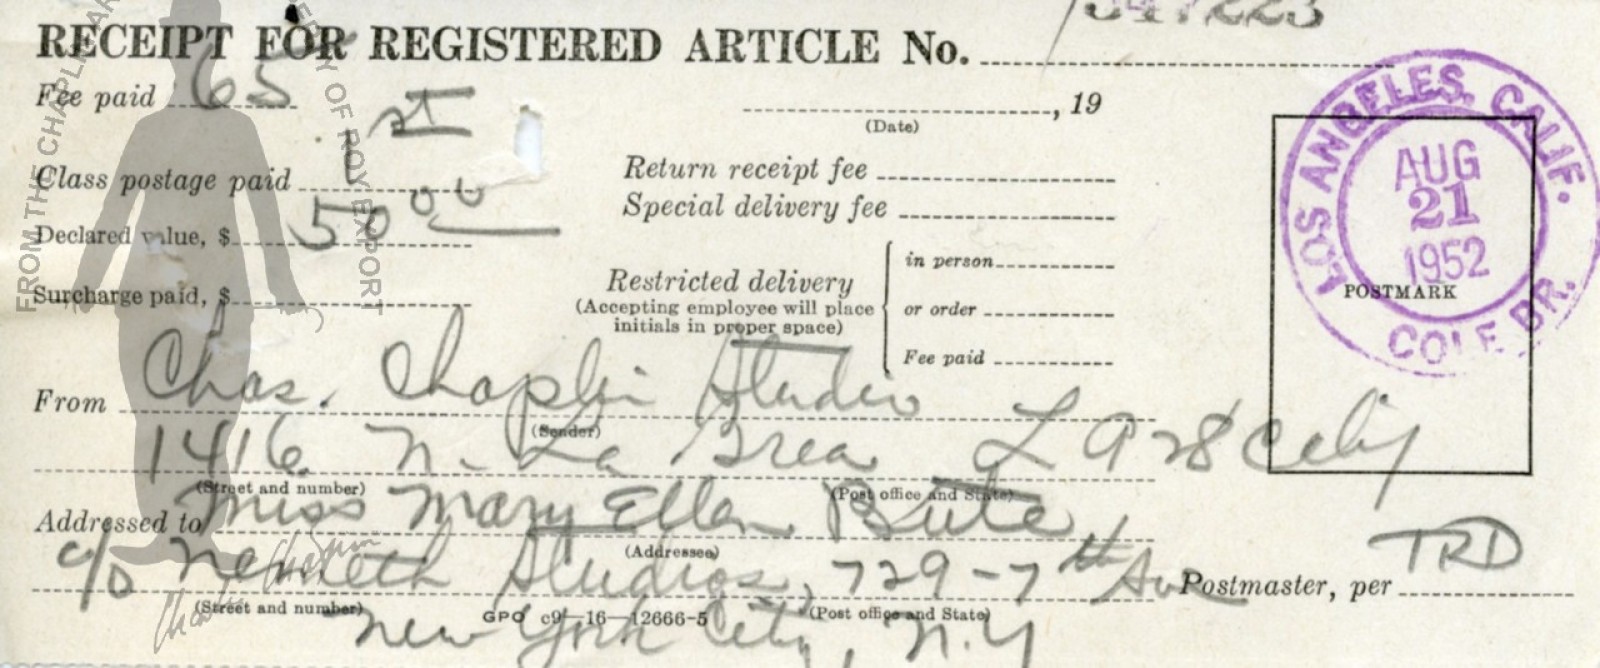 RECEIPT FOR REGISTERED ARTICLE No. 347223
Fee paid 65
, 19
(Date)
Class postage paid 1st
Return receipt fee
Declared value, $ 50 00
Special delivery fee
Surcharge paid, $
Restricted delivery
(Accepting employee will place
initials in proper space)
in person
or order
Fee paid
LOS ANGELES, CALIF.
AUG
21
1952
COLE BR.
POSTMARK
From Chas. Chaplin Studio
(Sender)
1416 N. La Brea L A 28 Calif
(Street and number) (Post office and State)
Addressed to Miss Mary Ellen Bute
(Addressee)
c/o Studios, 729-7th Ave
Postmaster, per TRD
(Street and number) GPO c9-16-12666-5 (Post office and State)
New York City, N.Y
FROM THE
OF ROY EXPORT